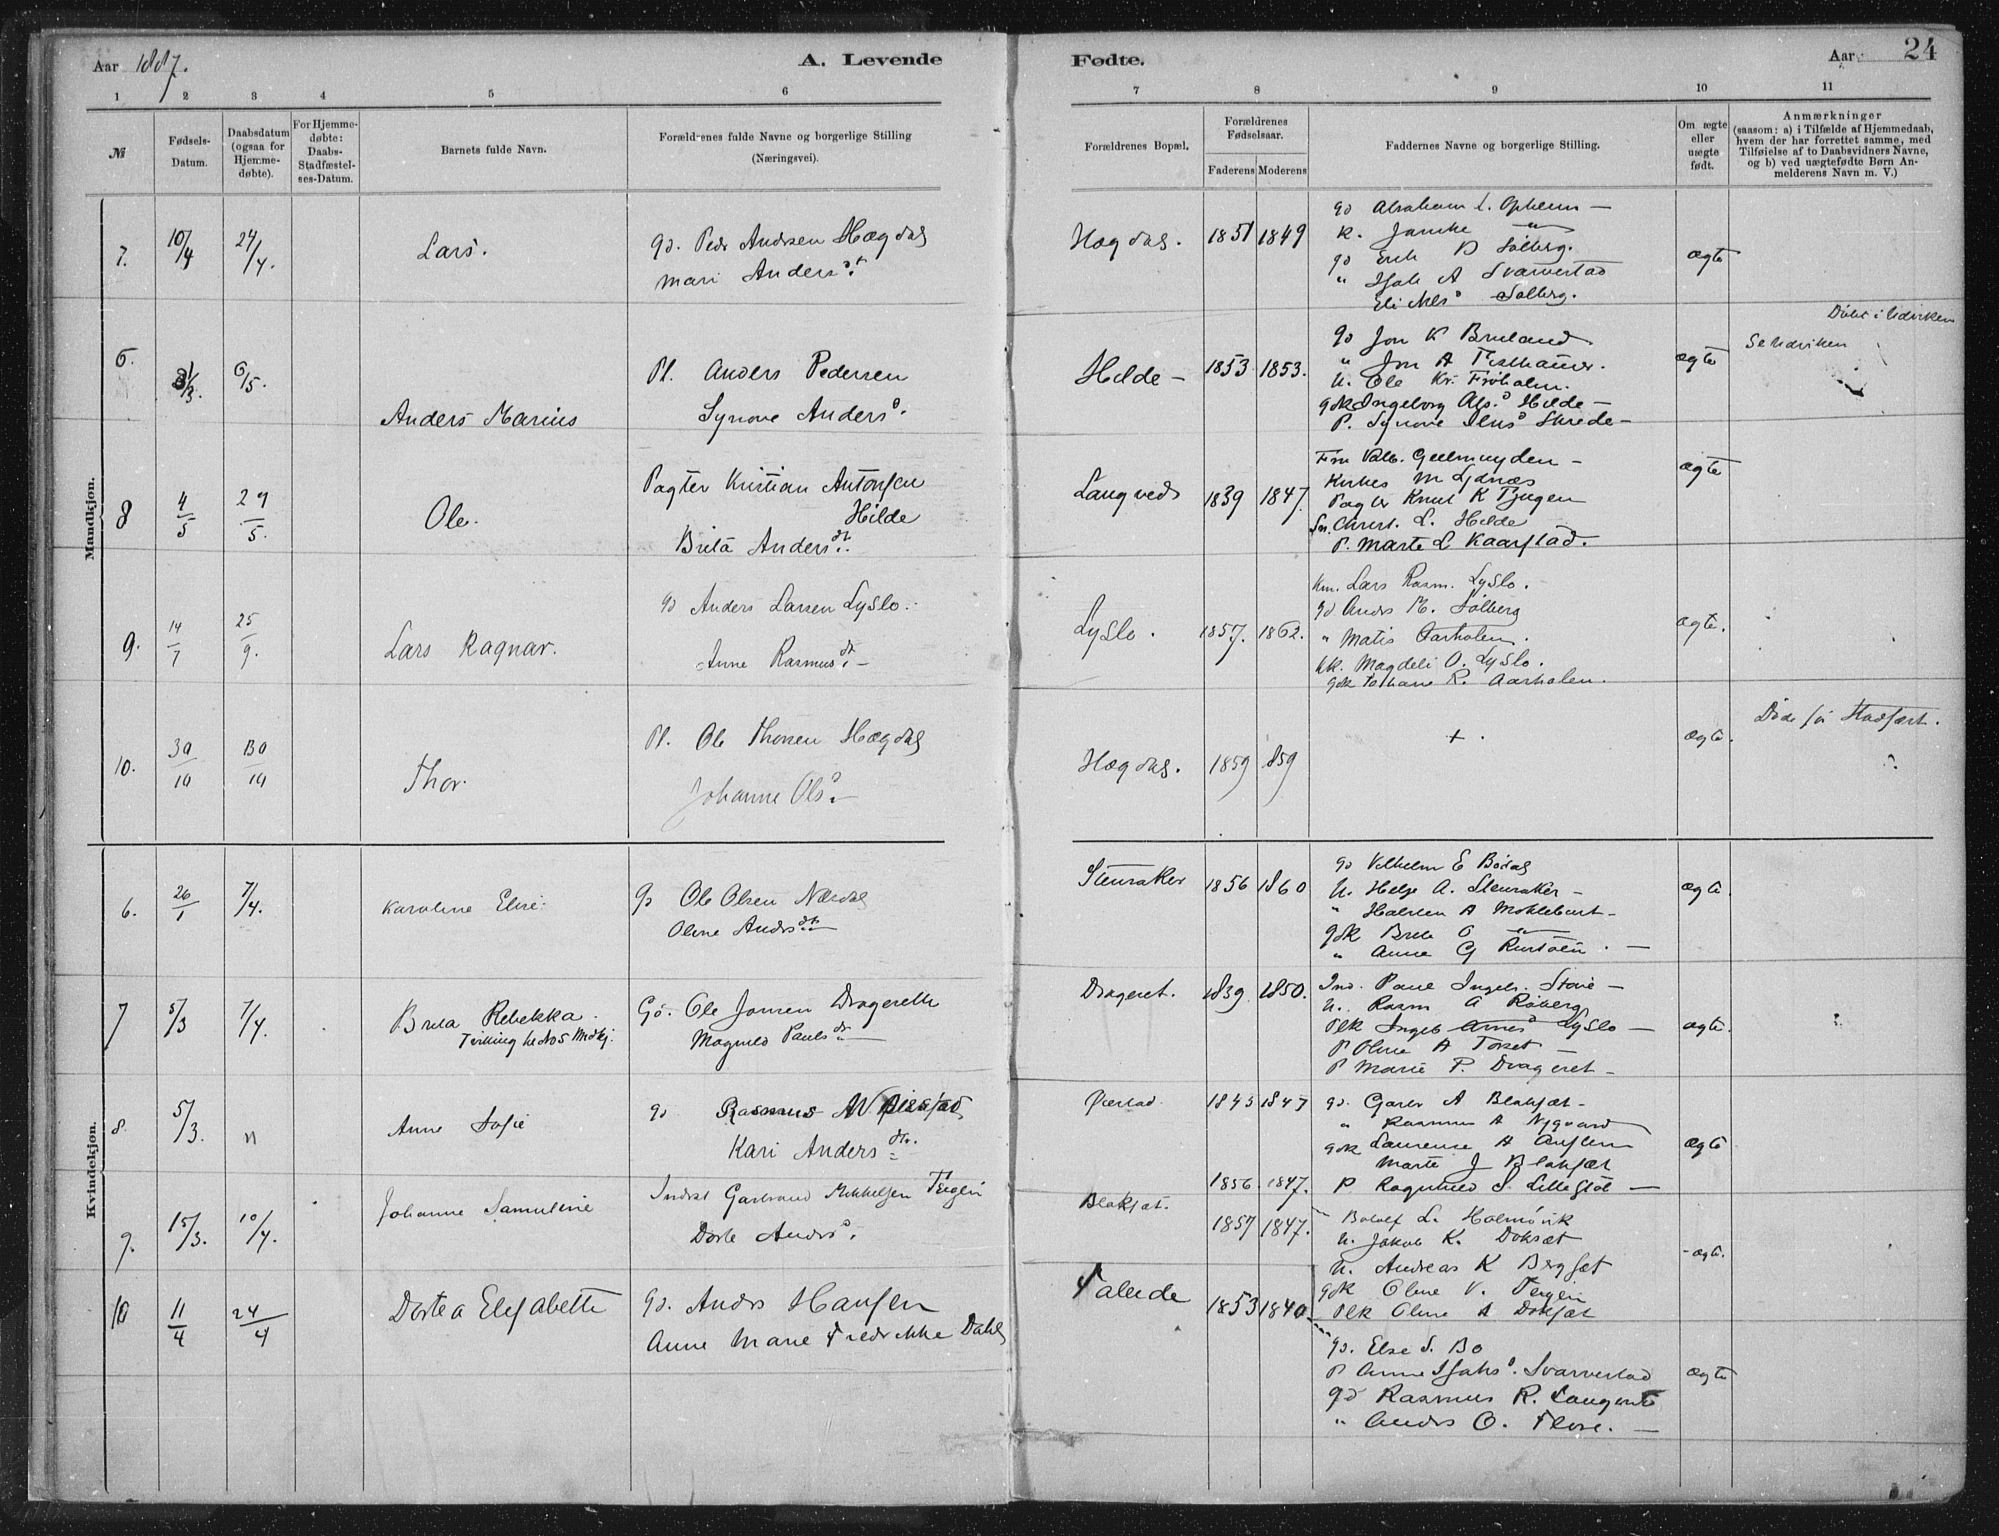 Aar 1887.
A. Levende Fødte.
Aar
24
1 2 3 4 5 6 7 8 9 10 11
№
Fødsels-Datum.
Daabsdatum (ogsaa for Hjemme-døbte).
For Hjemme-døbte: Daabs-Stadfæstel-ses-Datum.
Barnets fulde Navn.
Forældrenes fulde Navne og borgerlige Stilling (Næringsvei).
Forældrenes Bopæl.
Forældrenes Fødselsaar.
Faderens Moderens
Faddernes Navne og borgerlige Stilling.
Om ægte eller uægte født.
Anmærkninger
(saasom: a) i Tilfælde af Hjemmedaab,
hvem der har forrettet samme, med
Tilføielse af to Daabsvidners Navne,
og b) ved uægtefødte Børn An-
melderens Navn m. V.)
Mandkjøn.
7. 10/4 24/4. Lars.
gd. Peder Andersen Hægdal
Mari Andersdt.
Hægdal. 1851 1849
gd Abraham L. Opheim —
K. Janike "
gd Erik D Solberg.
" Isak A Svarvestad
Eli Nilsd Solberg.
ægte
6. 31/3 6/5. Anders Marius
Pl. Anders Pedersen
Synove Andersd.
Hilde — 1853 1853.
gd Jon K Bruland
" Jon A
U. Ole Kr. Frøholm.
gdk Ingeborg Als.d Hilde —
P. Synove Skrede —
ægte
Døbt i Udviken
Se Udviken
8 4/5 29/5. Ole.
Pagter Kristian Antonsen
Hilde
Brita Andersdt.
Langved 1839 1847.
Fru Valb. Geelmuyden —
Kirkes M Lødnæs
Pagter Knut K Tjugen
Sn. Christ. L. Hilde
P. Marte L Kaarstad.
ægte
9. 14/7 25/9. Lars Ragnar.
gd Anders Larsen Lyslo.
Anne Rasmusdt. —
Lyslo. 1857. 1862.
Km. Lars Rasm. Lyslo.
gd Anders M. Solberg
" Matis Aarholen.
kk. Magdeli O. Lyslo.
gdk Johane R. Aarholen.
ægte.
10. 30/10 30/10 Thor.
Pl. Ole Thorsen Hægdal
Johanne Olsd. —
Hægdal. 1859 859
+ .
ægte.
Døde før Stadfæst.
Kvindekjøn.
6. 26/1 7/4. Karoline Elise.
gd Ole Olsen Nesdal
Oline Andersdt.
Stenraker 1856 1860
gd Vilhelm E Bødal
U. Helge A. Stenraker —
" Halsten A Moklebust —
gdk Brite O "
" Anne G
ægte
7 5/3 7/4. Brita Rebekka.
Tvilling til No 5 Mndkj.
Gd. Ole Jonsen Dragerette
Magnild Paulsdt.
Drageret. 1839 1850.
Ind. Paul Ingebr. Støve —
U. Rasm A Røberg
Plk Ingeb Arnesd Lyslo —
P Oline A Torset —
P Marie P. Drageret —
ægte.
8. 5/3. " Anne Sofie
gd Rasmus
Kari Andersdtr.
1843 1847
gd. Garbr A Blaksæt —
" Rasmus A Nygaard
gdk Laurense A
Marte J Blaksæt
P Ragnhild S.
ægte
1856 1847.
9. 15/3. 10/4. Johanne Samuline
Indst Garbrand Mikkelsen Teigen
Dorte Andersd.
Blaksæt. 1857 1847.
L. Holmøvik
U. Jakob K. Doksæt
U. Andreas K Bergset
gdk Oline V. Teigen
Plk Oline A Doksæt
ægte.
10 11/4 24/4 Dortea Elisabette
gd. Anders Hansen
Anne Marie Fredrikke Dahl
Faleide 1853 1840.
gd. Else S. Bø
P Anne Isaksd. Svarvestad
gd Rasmus R. Langvete
" Anders O. Flore. —
ægte